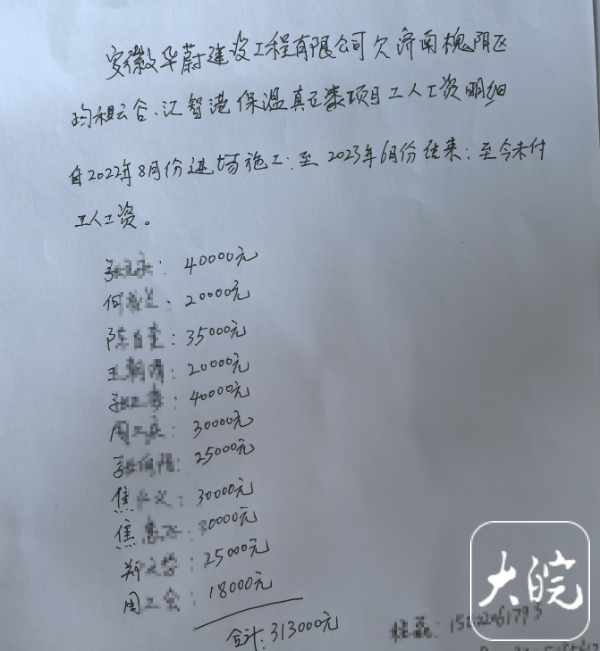 安徽华蔚建设工程有限公司欠济南槐阴区
均和云谷.汇智港保温真石漆项目工人工资明细
自2022年8月份进场施工:至2023年6月份结束:至今未付
工人工资。
张:40000元
何:20000元
陈:35000元
王:20000元
张:40000元
周:30000元
张:25000元
焦:30000元
焦:30000元
郑:25000元
周:18000元
合计:313000元
大皖